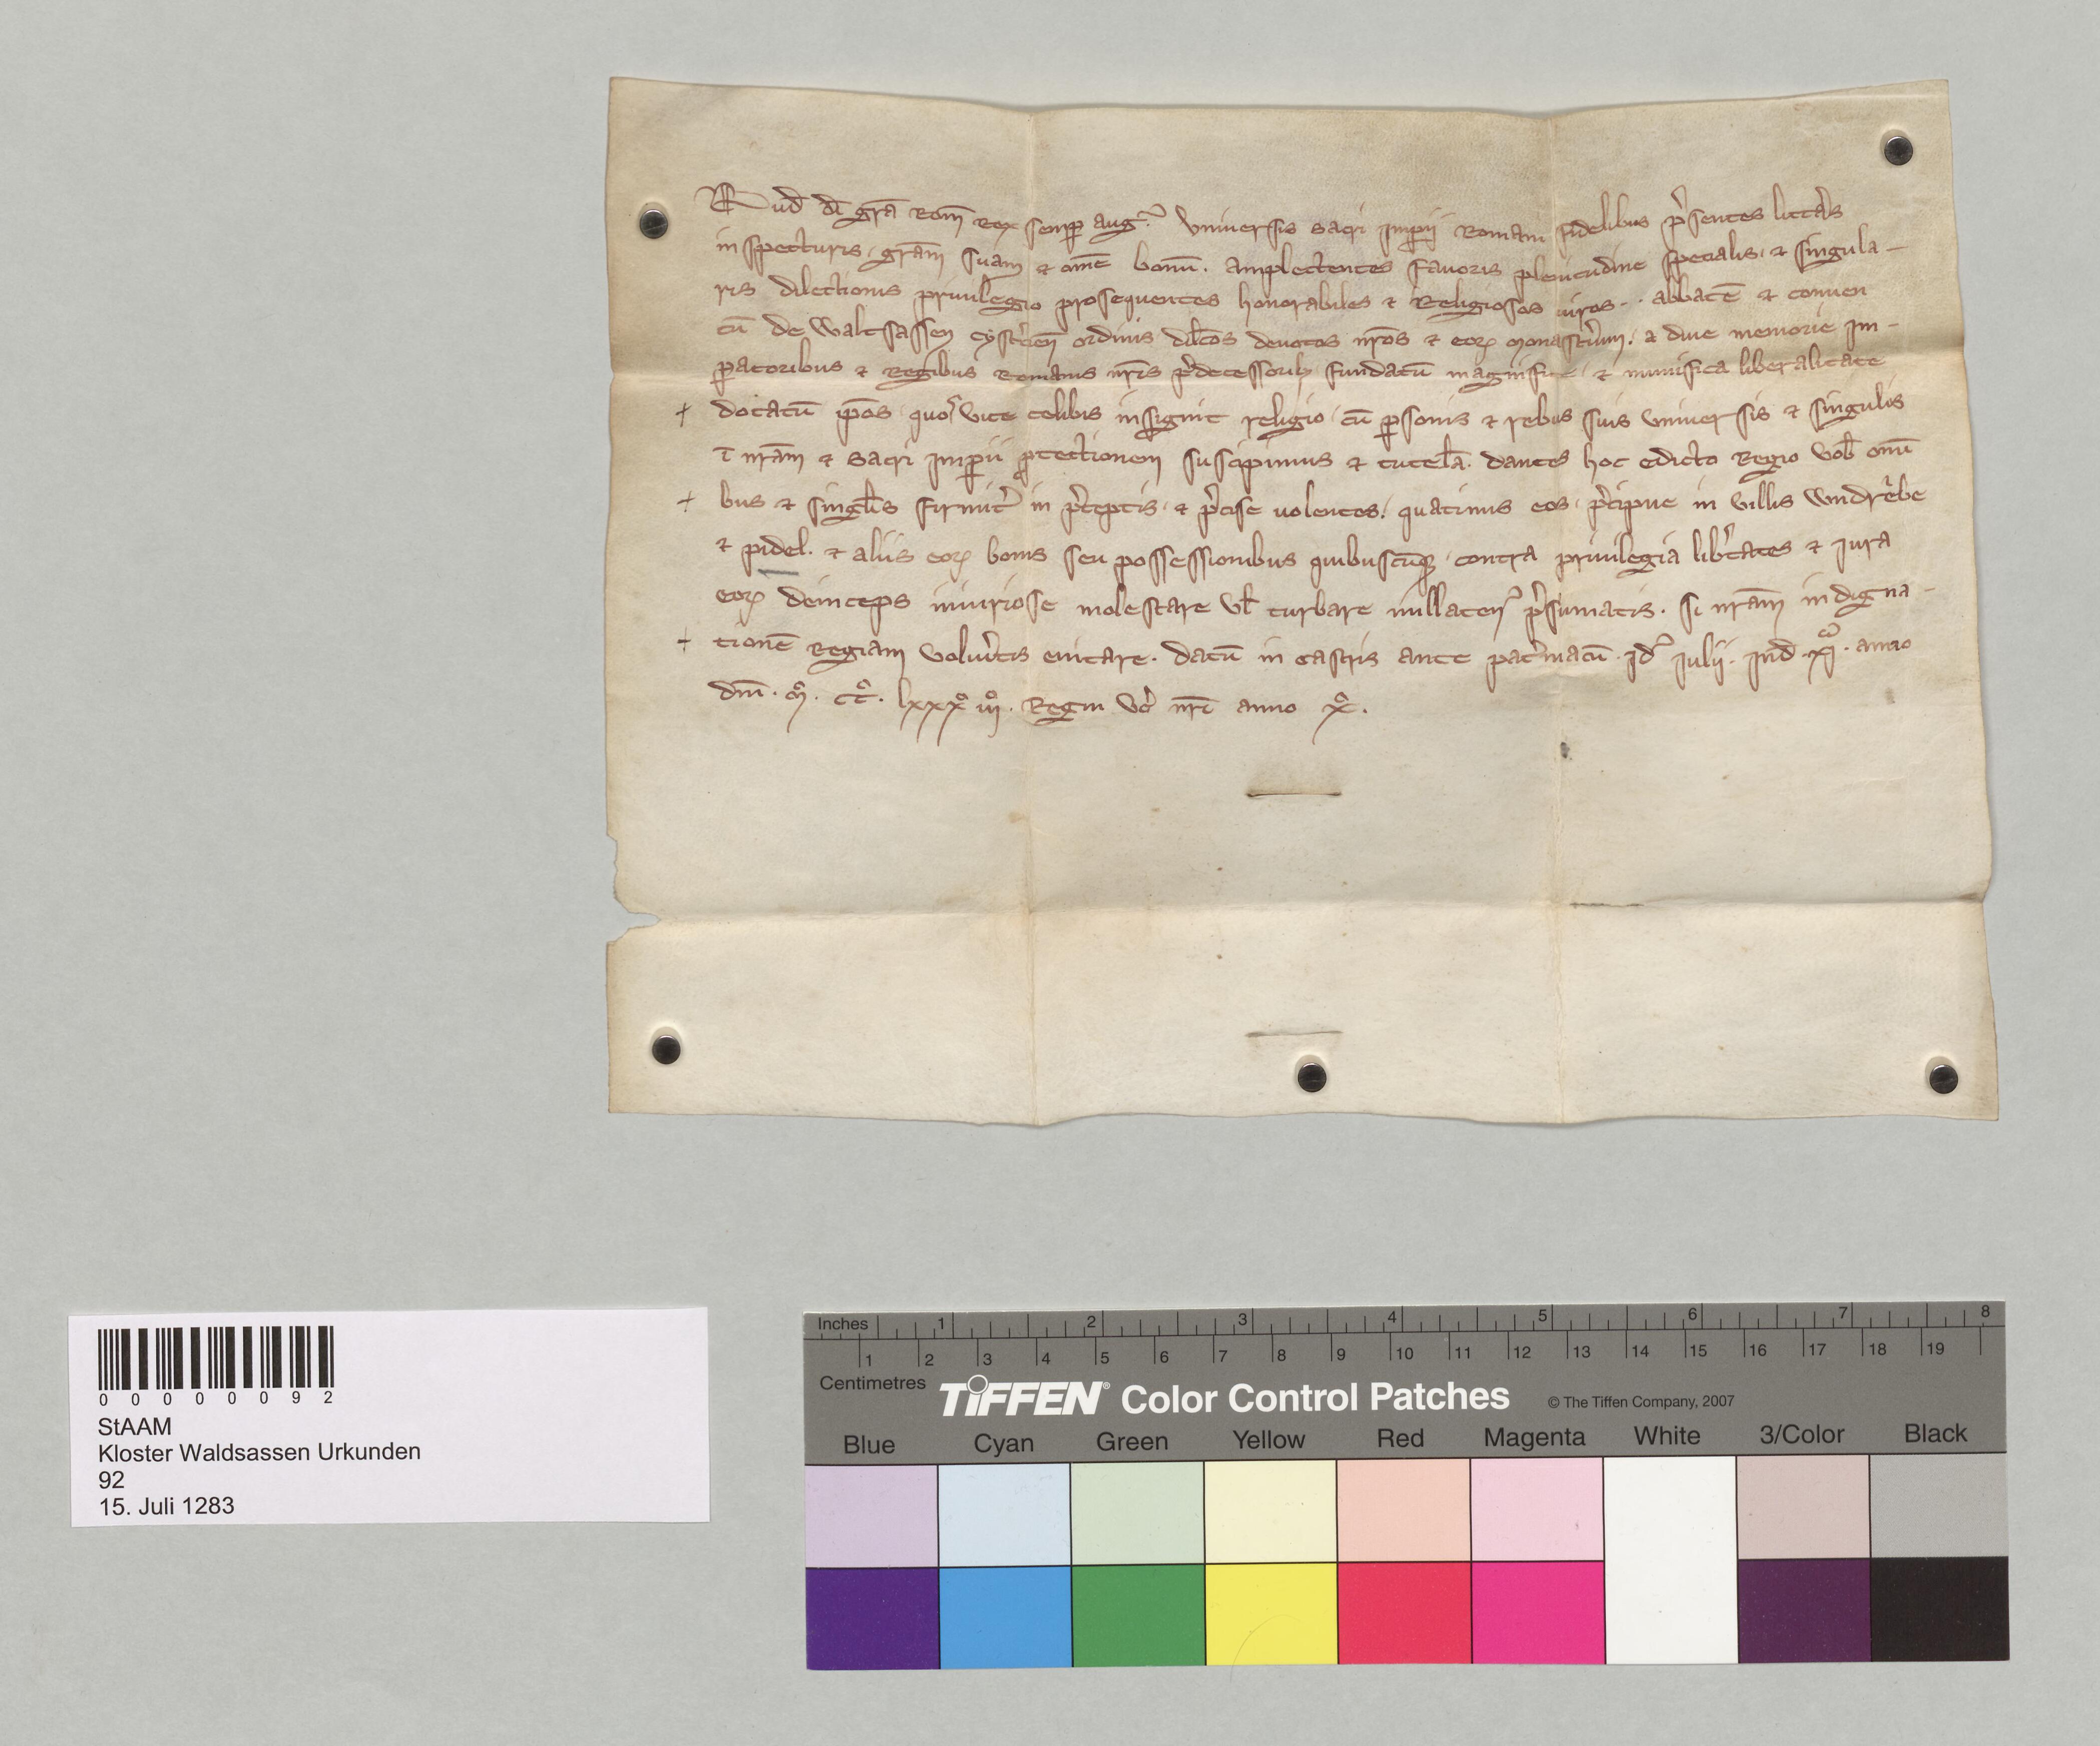 Rud di gra Rom Rex semp aug? Vniuersis sacri Impii Romani fidelibus psentes litteras
inspecturis, gram suam & ome bonu. amplectentes fauoris plenitudine specialis, & singula-
ris dilectionis priuilegio prosequentes honorabiles & Religiosos uiros . . abbate & conuen
tu de Waltsassen cystcien ordinis dilcos deuotos nros & eoꝝ monastium, a diue memorie im-
patoribus & Regibus Romanis nris pdecessorib; fundatu magnifice, & munifica liberalitate
+ dotatu ipos, quoꝝ vite celibis insignit religio, cu psonis & rebus suis vniuersis & singulis
ī nram & sacri Impii ptectionem suscipimus & tutela. dantes hoc edicto Regio vob omi
+ bus & singlis firmit in pceptis, & pcise uolentes, quatinus eos, pcipue in villis Wndrebe
& pidel. & aliis eoꝝ bonis seu possessionibus quibuscuq;, contra priuilegia libtates & iura
eoꝝ deinceps iniuriose molestare vl turbare nullaten psumatis. si nram indigna-
+ tione Regiam voluitis euitare. datu in castris ante patniacu. Id Iulij. Ind. xi. anno
dni. m. cc. lxxx iij. Regni vo nri anno x.
0 0 0 0 0 0 9 2
StAAM
Kloster Waldsassen Urkunden
92
15. Juli 1283
Inches 1 2 3 4 5 6 7 8
1 2 3 4 5 6 7 8 9 10 11 12 13 14 15 16 17 18 19
Centimetres
TIFFEN® Color Control Patches © The Tiffen Company, 2007
Blue Cyan Green Yellow Red Magenta White 3/Color Black